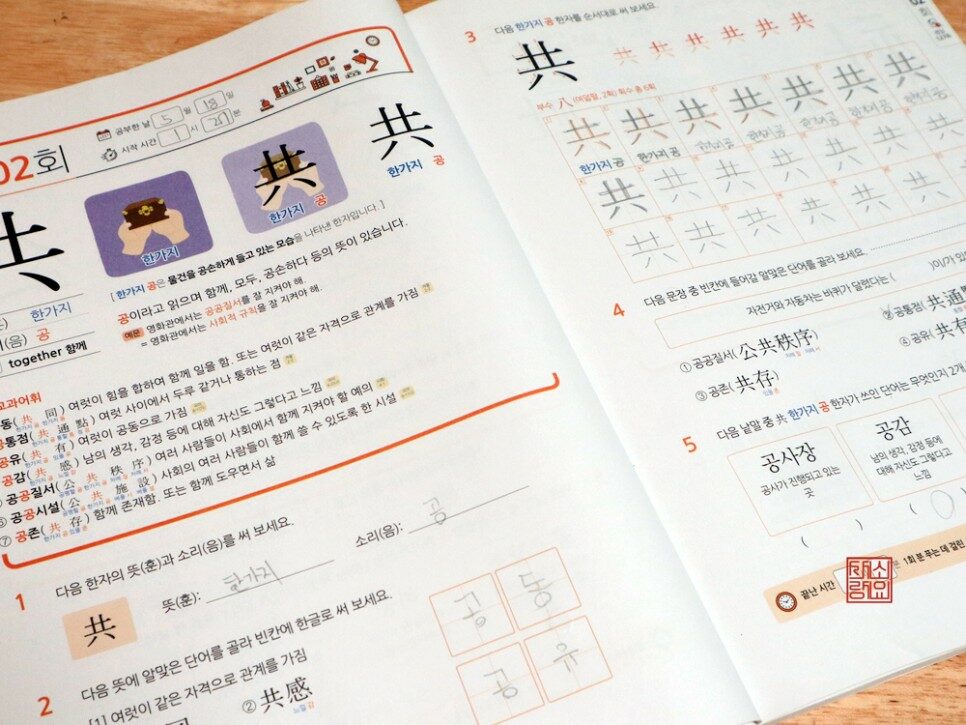 02회
공부한 날 5 월 18 일
시작 시간 1 시 20 분
共
한가지
共
한가지 공
共
한가지 공
한가지
(음) 공
together 함께
[ 한가지 공은 물건을 공손하게 들고 있는 모습을 나타낸 한자입니다. ]
공이라고 읽으며 함께, 모두, 공손하다 등의 뜻이 있습니다.
예문 영화관에서는 공공질서를 잘 지켜야 해.
= 영화관에서는 사회적 규칙을 잘 지켜야 해.
교과어휘
동(共同) 여럿이 힘을 합하여 함께 일을 함. 또는 여럿이 같은 자격으로 관계를 가짐
공통점(共通點) 여럿 사이에서 두루 같거나 통하는 점
공유(共有) 여럿이 공동으로 가짐
공감(共感) 남의 생각, 감정 등에 대해 자신도 그렇다고 느낌
공공질서(公共秩序) 여러 사람들이 사회에서 함께 지켜야 할 예의
⑥ 공공시설(公共施設) 사회의 여러 사람들이 함께 쓸 수 있도록 한 시설
⑦ 공존(共存) 함께 존재함. 또는 함께 도우면서 삶
1 다음 한자의 뜻(훈)과 소리(음)를 써 보세요.
共 뜻(훈): 한가지 소리(음): 공
2 다음 뜻에 알맞은 단어를 골라 빈칸에 한글로 써 보세요.
[1] 여럿이 같은 자격으로 관계를 가짐
② 共感
느낄 감
공 동
공 유
3 다음 한가지 공 한자를 순서대로 써 보세요.
共 共 共 共 共 共 共
부수 八 (여덟팔, 2획) 획수 총 6획
共 共 共 共 共 共 共
한가지 공 한가지 공 한가지 공 한가지 공 한가지 공 한가지 공 한가지 공
共 共 共 共 共 共 共
共 共 共 共 共 共 共
4 다음 문장 중 빈칸에 들어갈 알맞은 단어를 골라 보세요.
자전거와 자동차는 바퀴가 달렸다는 ( )이/가 있
① 공공질서(公共秩序)
② 공통점(共通點
③ 공존(共存)
④ 공유(共有
5 다음 낱말 중 共 한가지 공 한자가 쓰인 단어는 무엇인지 2개
공사장
공사가 진행되고 있는
곳
공감
남의 생각, 감정 등에
대해 자신도 그렇다고
느낌
( ) ( ○ )
끝난 시간
1회 분 푸는 데 걸린